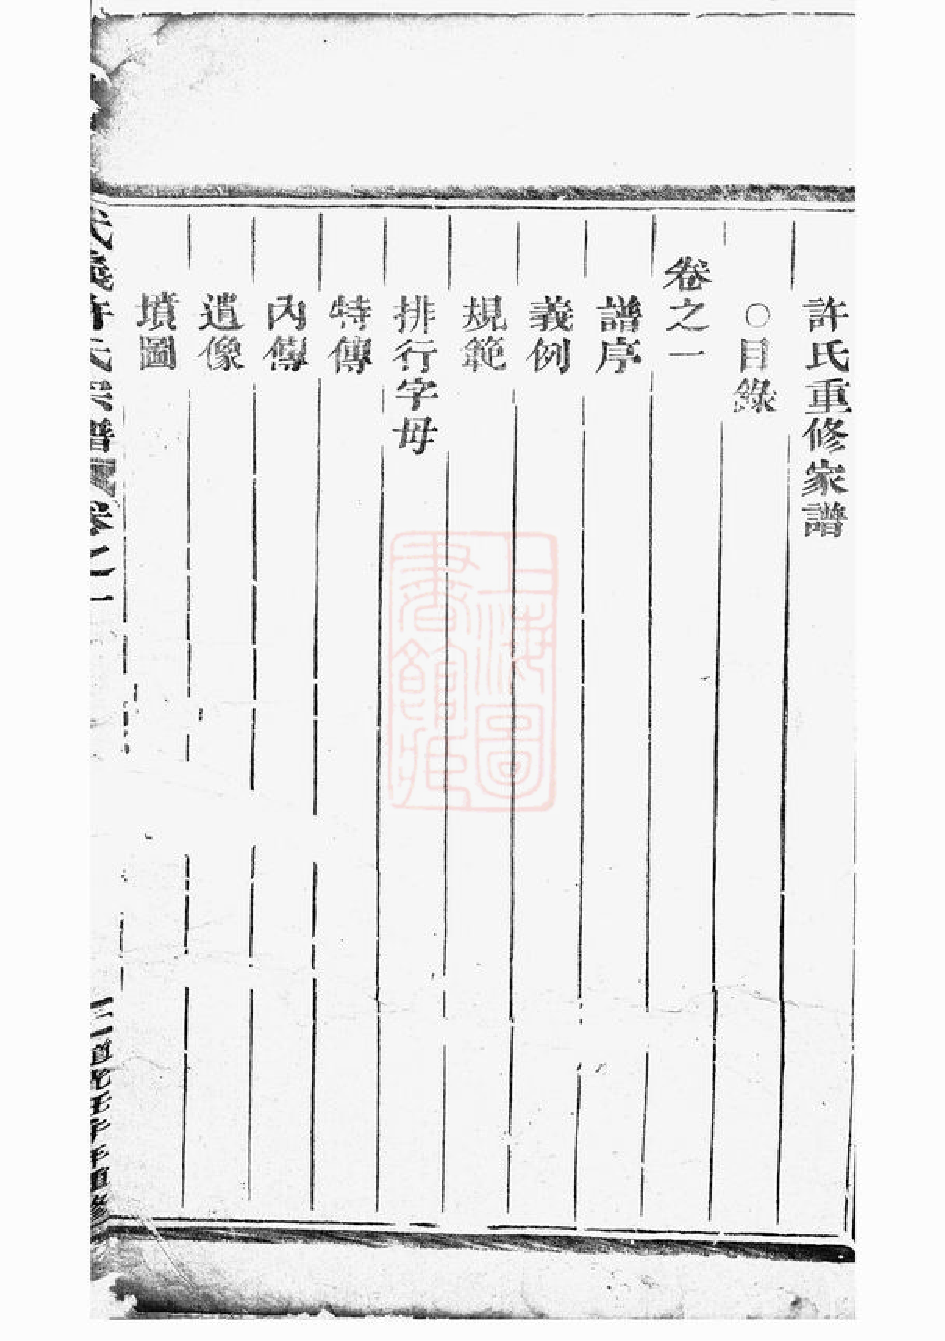 許氏重修家譜
○目錄
卷之一
譜序
義例
規範
排行字母
特傳
內傳
遺像
墳圖
許氏宗譜
上海圖書館藏